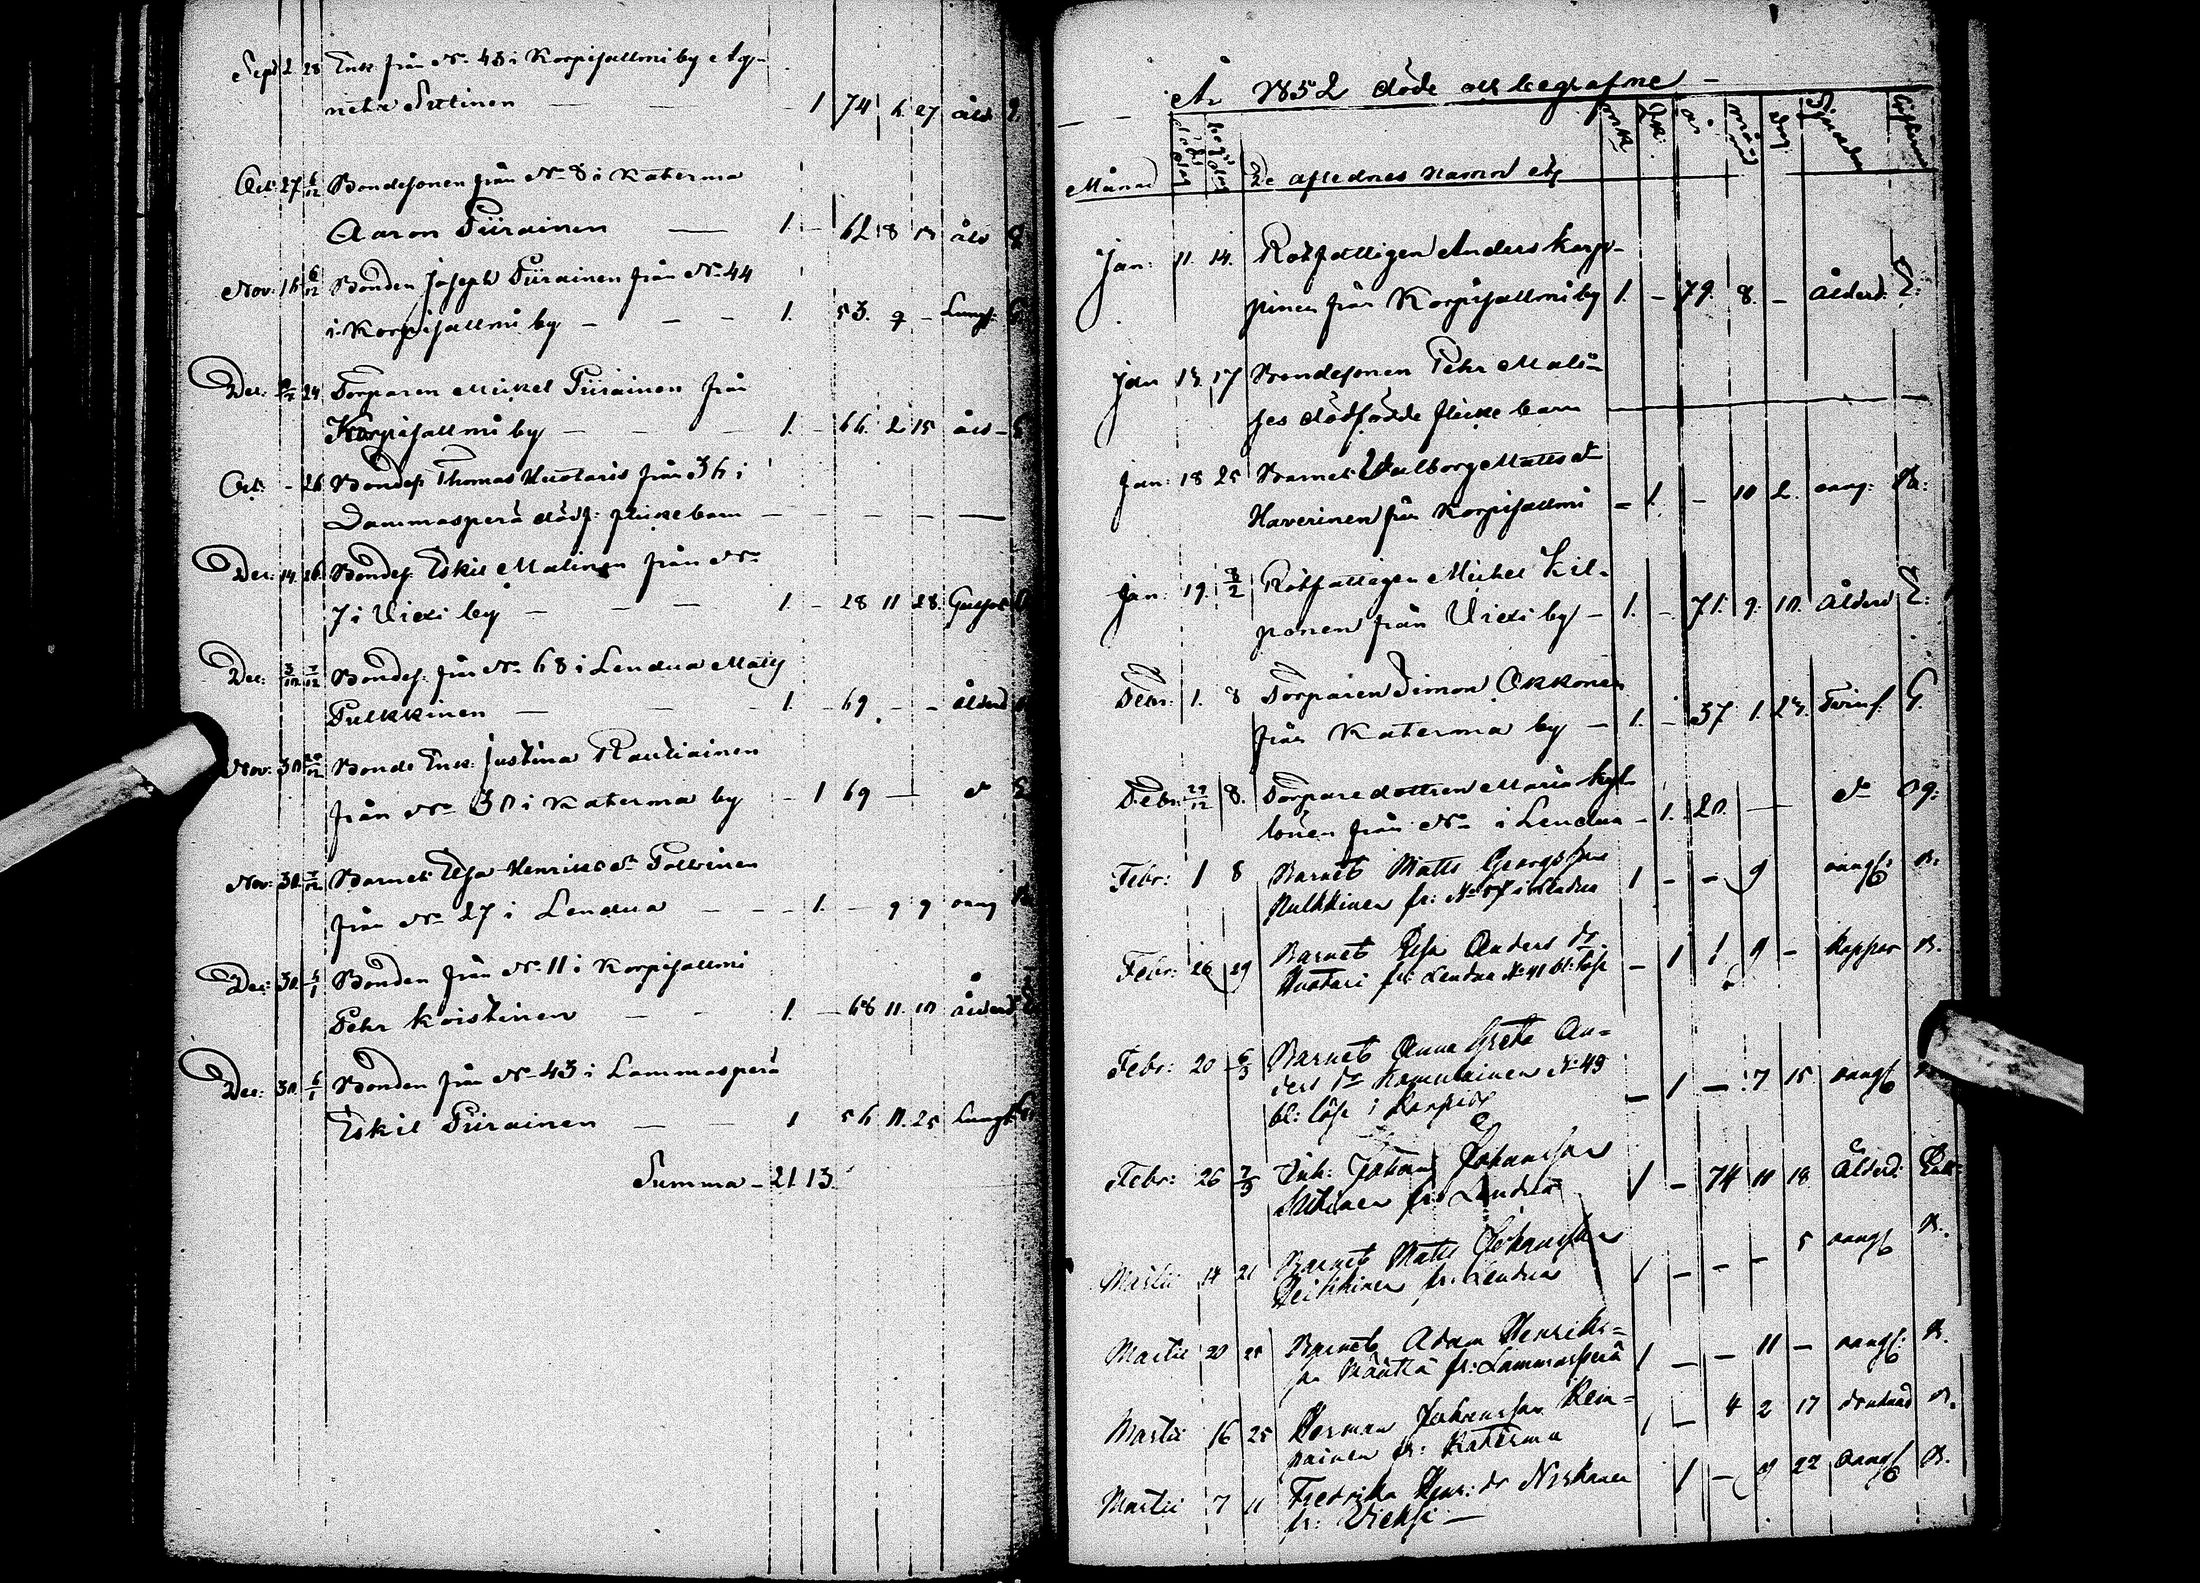 Sept 2 28 Enk. från No 43 i Korpisalmi by Ag-
neta Sutinen — 1 74 6 27 åld E.
Oct. 27 6/12 Bondesonen från No 8 i Katerma
Aaron Piirainen — 1. — 62 8 åld
Nov. 16 6/12 Bonden Joseph Piirainen från No 44
i Korpisalmi by — 1. 53. 9 — Lungs. G
Dec. 24 Torparen Michel Piirainen från
Korpisalmi by — 1. — 66. 2 15 åld — E
Oct. - 26 Bondes. Thomas Huotaris från 36 i
Lammasperä dödf. flickebarn —
Dec. 14. 26. Bondes. Eskil Malinen från No
7 i Viexi by — 1. — 28 11 28.
Dec. 7/12 Bondes. från No 68 i Lendua Matts
Pulkkinen — 1. — 69. — — ålderd
Nov. 30 20/12 Bonde Enk. Justina Rautiainen
från No 30 i Katerma by — 1 69 — do E
Nov. 30 7/12 Barnet Elsa Henriksdr Polvinen
från No 27 i Lendua — 1. — 9 9 oang B
Dec. 30. 4/1 Bonden från No 11 i Korpisalmi
Pehr Koistinen — 1. — 68 11. 10 ålderd
Dec. 30. 6/1 Bonden från No 43 i Lammasperä
Eskil Piirainen — 1 56 11. 25 Lungs
Summa — 21 13.
År 1852 döde och begrafne —
Månad De aflednes namn etc
Jan: 11. 14. Rotfattigen Anders Karp-
pinen från Korpisalmi by 1. — 79. 8. — Ålderd. E:
Jan 13. 17 Bondesonen Pehr Mali-
ses dödfödde flicke barn
Jan: 18 25 Barnet Walborg Matts dr
Haverinen från Korpisalmi — 1. — 10 2. oang: B:
Jan: 19. 8/2 Rotfattigen Michel Kil-
ponen från Viexi by — 1. — 71. 9. 10. Ålderd E:
Febr. 1. 8 Torparen Simon Okkonen
från Katerma by — 1. — 37 1. 23. G.
Febr. 29/12 8. Torparedottren Maria Kyl-
lönen från No i Lendua — 1. 20. — do Og:
Febr: 1 8 Barnet Matts Georgsson
Pulkkinen fr: No i Lendua 1 — — 9 oangf: B:
Febr: 26 29 Barnet Elsa Anders dr
Huotari fr: Lendua No 41 bl: löse — 1 1. 9 — koppor B.
Febr: 20 6/3 Barnet Anna Greta An=
ders dr No 49
bl: löse i — 1 — 7 15 oangf
Febr: 26 7/3 Inh: Johan Johansson
fr: Lendua 1 — 74 10 18 Ålderd: Enk:
Martii 14 21 Barnet Matts Johansson
Heikkinen fr: Lendua 1 — — — 5 oangf B.
Martii 20 25 Barnet Adam Henriks=
son Määttä fr: Lammasperä 1 — — 11 — oangf: B.
Martii 16 25 Herman Johansson Kem=
painen fr: Katerma 1 — 4 2 17 drunknad B.
Martii 7 11 Fredrika Henr: dr Niskanen
fr: Vieksi — 1 — 9 22 oangf B.